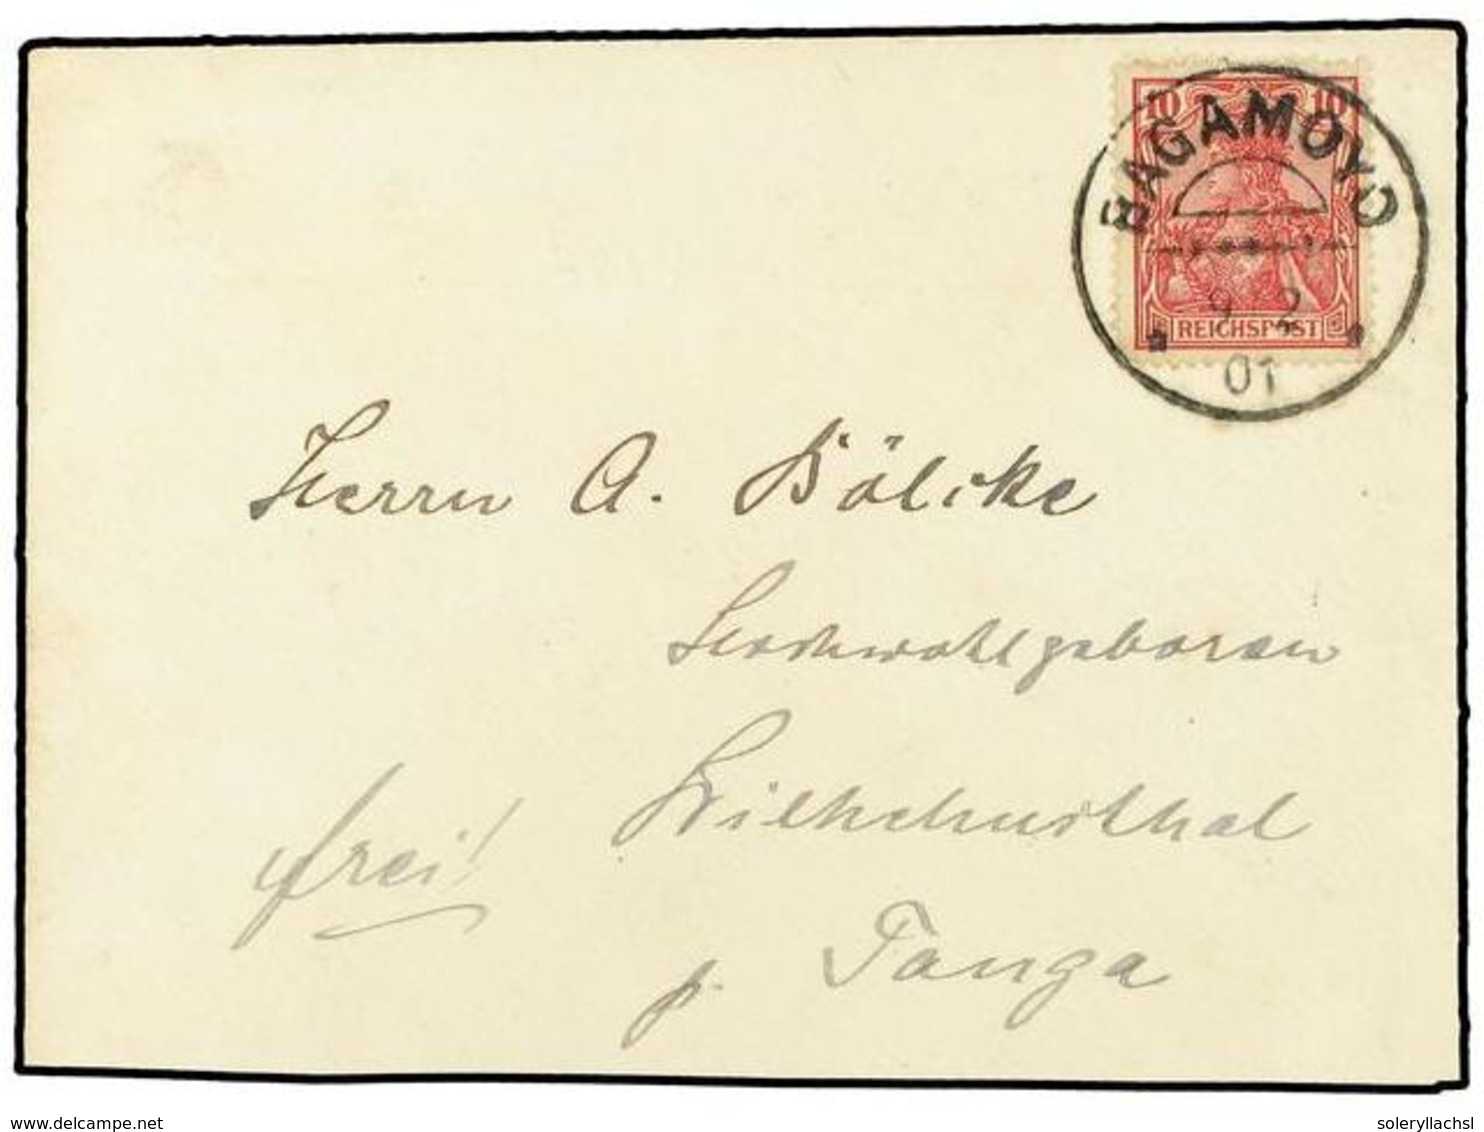 10 10
BAGAMOYO
9 2
01
REICHSPOST
Herrn A. Bölcke
Hochwohlgeboren
Wilhelmsthal
frei!
p. Tanga
www.delcampe.net
soleryllachsl